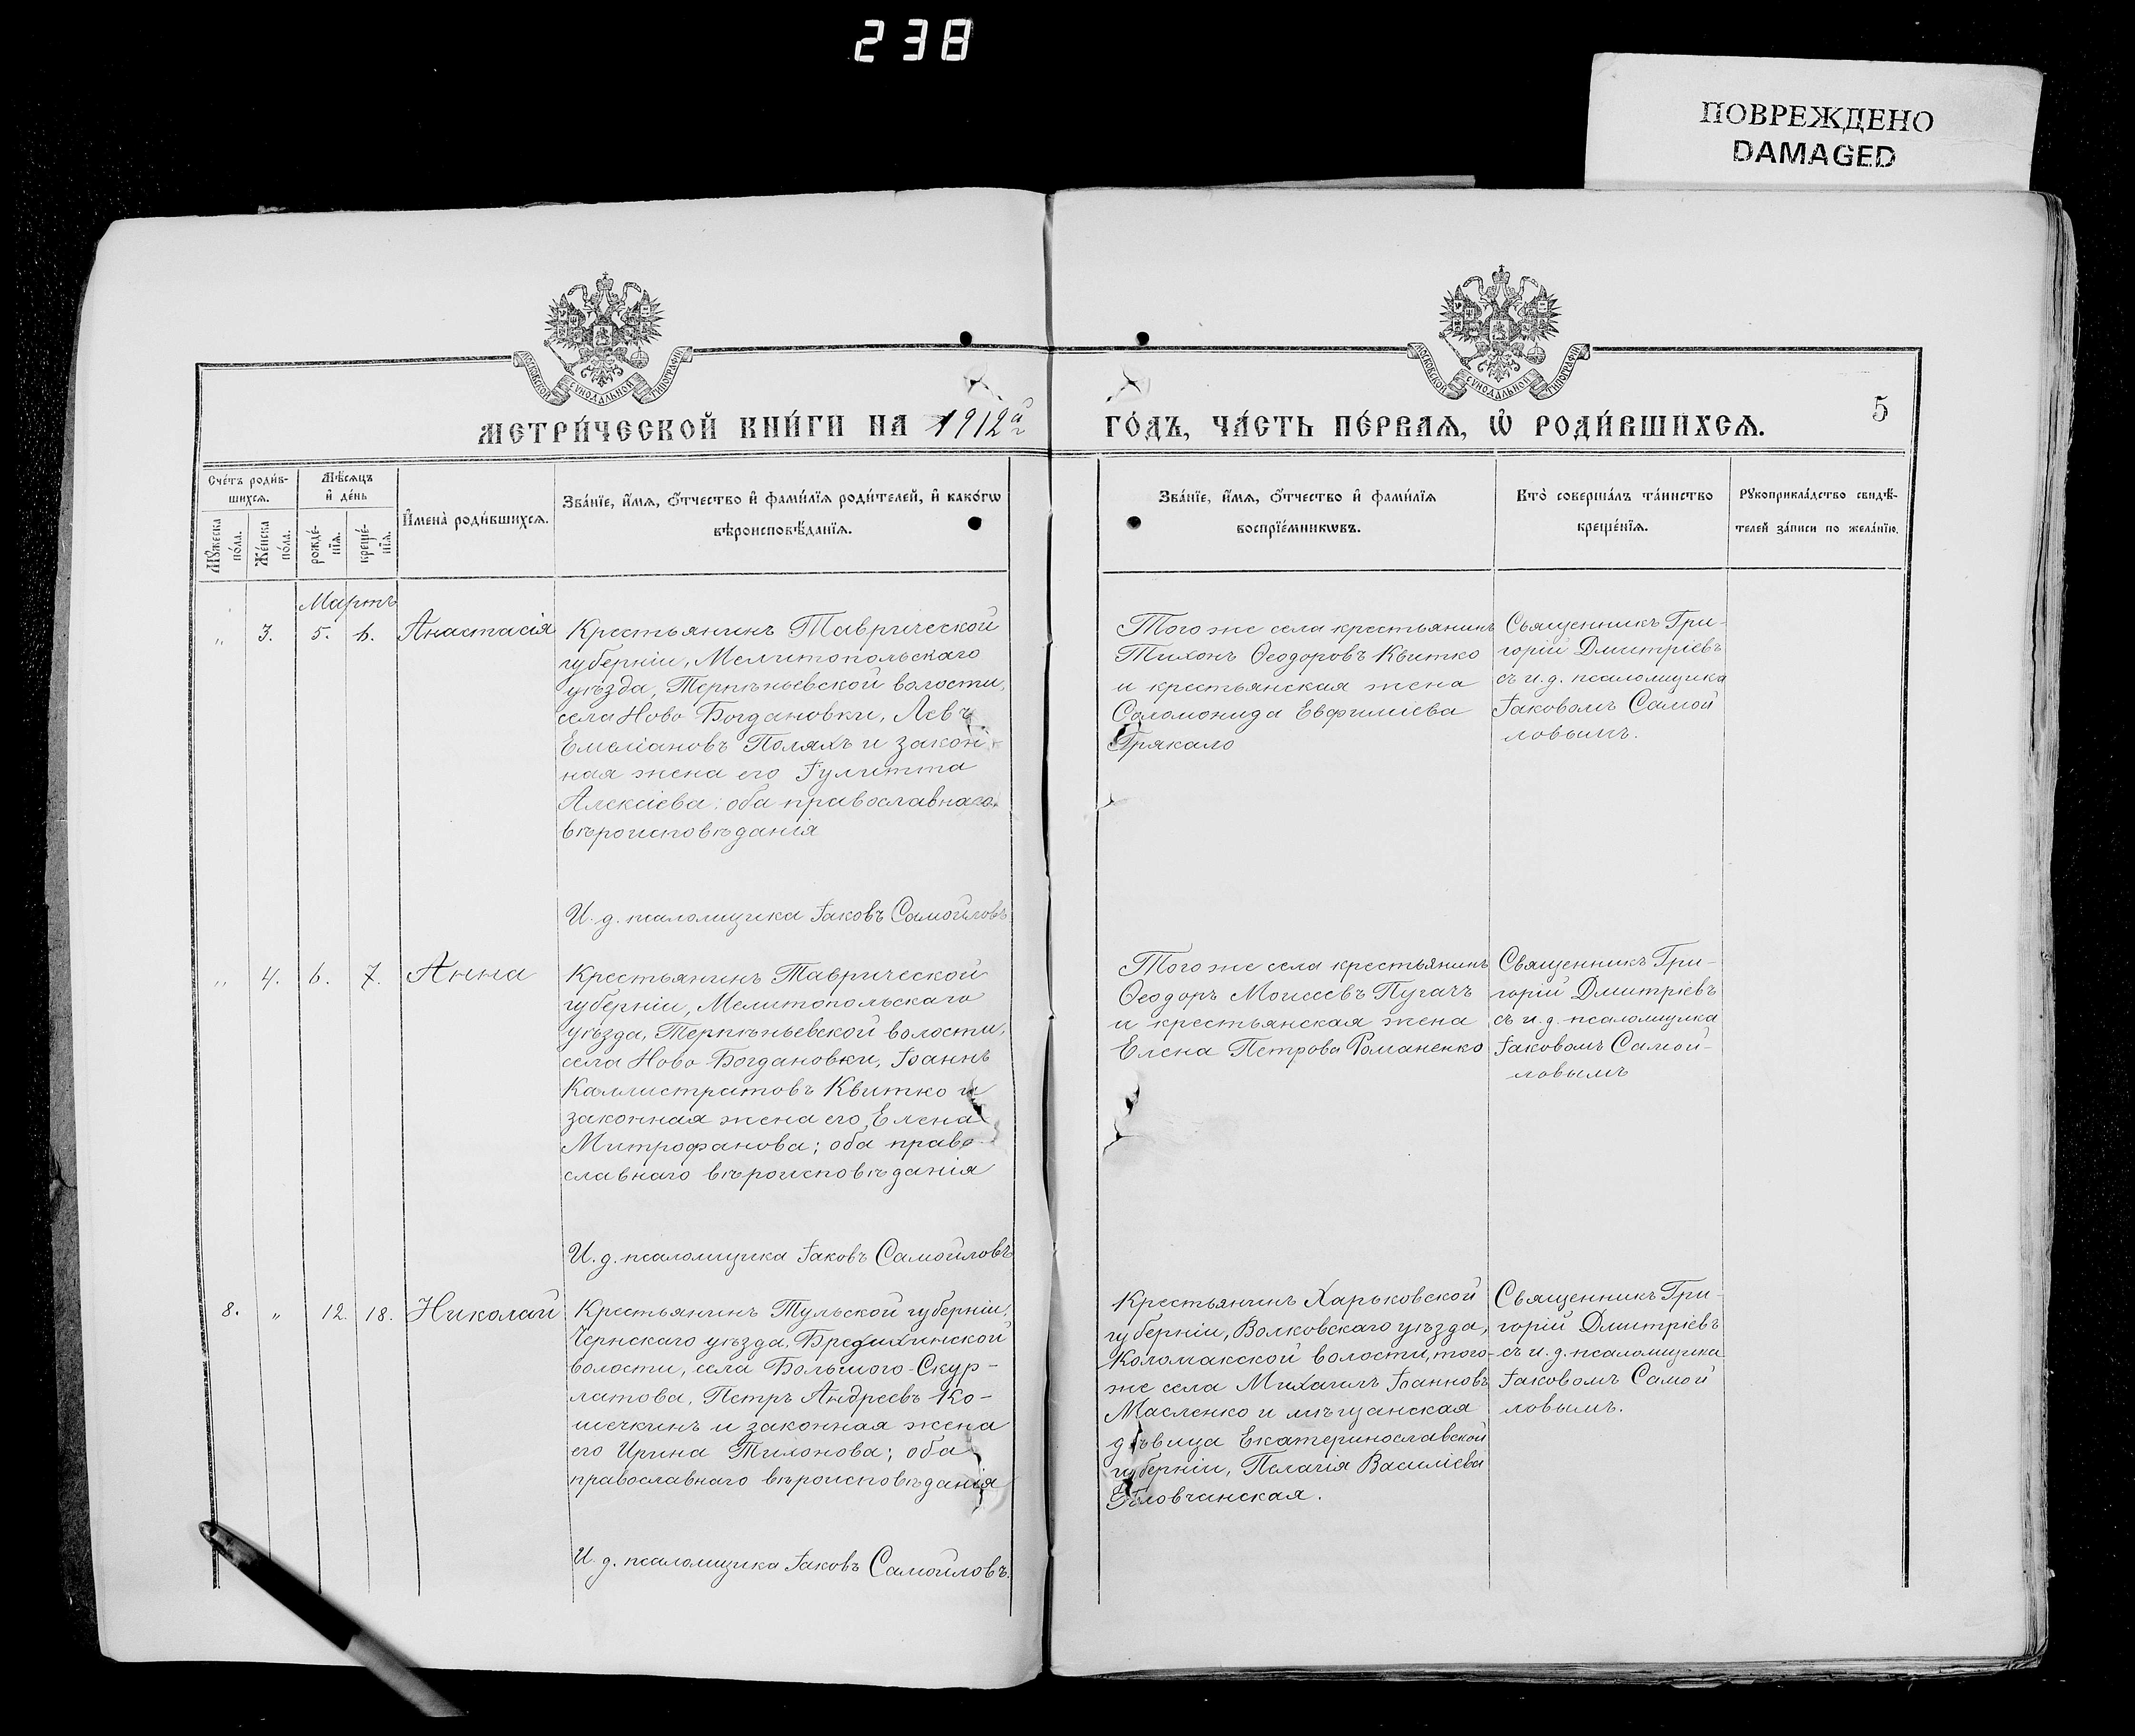 238
ПОВРЕЖДЕНО
DAMAGED
МОСКОВСКОЙ СѴНОДАЛЬНОЙ ТИПОГРАФІИ
МОСКОВСКОЙ СѴНОДАЛЬНОЙ ТИПОГРАФІИ
МЕТРИ́ЧЕСКОЙ КНИ́ГИ НА 1912й г
ГО́ДЪ, ЧА́СТЬ ПЕ́РВАЯ, Ѡ҆ РОДИ́ВШИХСЯ.
5
Сче́тъ роди́в-
шихся.
Мѣ́сяцъ
и҆ де́нь
Мꙋ́жеска
по́ла.
Же́нска
по́ла.
рожде́-
нїя.
креще́-
нїя.
И҆мена̀ роди́вшихся.
Зва́нїе, и҆́мя, ѻ҆́тчество и҆ фами́лїя роди́телей, и҆ како́гѡ
вѣроисповѣ́данїя.
Зва́нїе, и҆́мя, ѻ҆́тчество и҆ фами́лїя
воспрїе́мникѡвъ.
Кто̀ соверша́лъ та́инство
креще́нїя.
Рꙋкоприкла́дство свидѣ́-
телей за́писи по жела́нїю.
Мартъ
„ 3. 5. 6. Анастасія
Крестьянинъ Таврической
губерніи, Мелитопольскаго
уѣзда, Терпѣньевской волости,
села Ново-Богдановки, Левъ
Емеліановъ Поляхъ и закон-
ная жена его Іулитта
Алексіева; оба православнаго
вѣроисповѣданія
И. д. псаломщика Іаковъ Самойловъ
Того же села крестьянинъ
Тихонъ Ѳеодоровъ Квитко
и крестьянская жена
Соломонида Евфиміева
Грякало
Священникъ Гри-
горій Дмитріевъ
съ и. д. псаломщика
Іаковомъ Самой
ловымъ.
„ 4. 6. 7. Анна
Крестьянинъ Таврической
губерніи, Мелитопольскаго
уѣзда, Терпѣньевской волости,
села Ново-Богдановки, Іоаннъ
Каллистратовъ Квитко и
законная жена его, Елена
Митрофанова; оба право-
славнаго вѣроисповѣданія
И. д. псаломщика Іаковъ Самойловъ
Того же села крестьянинъ
Ѳеодоръ Моисеевъ Пугачъ
и крестьянская жена
Елена Петрова Романенко
Священникъ Гри-
горій Дмитріевъ
съ и. д. псаломщика
Іаковомъ Самой-
ловымъ
8. „ 12. 18. Николай
Крестьянинъ Тульской губерніи,
Чернскаго уѣзда, Бредихинской
волости, села Большого-Скур-
латова, Петръ Андреевъ Ко-
шечкинъ и законная жена
его Ирина Тихонова; оба
православнаго вѣроисповѣданія
И. д. псаломщика Іаковъ Самойловъ.
Крестьянинъ Харьковской
губерніи, Волковскаго уѣзда,
Коломакской волости, того-
же села Михаилъ Іоанновъ
Масленко и мѣщанская
дѣвица Екатеринославской
губерніи, Пелагія Василіева
Священникъ Гри-
горій Дмитріевъ
съ и. д. псаломщика
Іаковомъ Самой
ловымъ.